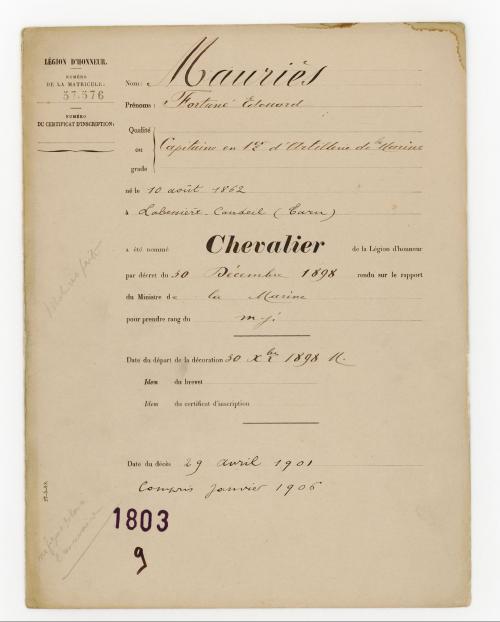 LÉGION D'HONNEUR.
NUMÉRO
DE LA MATRICULE:
57.576
NUMÉRO
DU CERTIFICAT D'INSCRIPTION:
Nom: Mauriès
Prénoms: Fortuné Edouard
Qualité
ou
grade
Capitaine en 1er d'Artillerie de la Marine
né le 10 août 1862
à Labessière-Candeil (Tarn)
a été nommé Chevalier de la Légion d'honneur
par décret du 30 Décembre 1898 rendu sur le rapport
du Ministre de la Marine
pour prendre rang du m. j.
Date du départ de la décoration 30 Xbre 1898 N.
Idem du brevet
Idem du certificat d'inscription
Date du décès 29 avril 1901
Compris Janvier 1906
1803
9